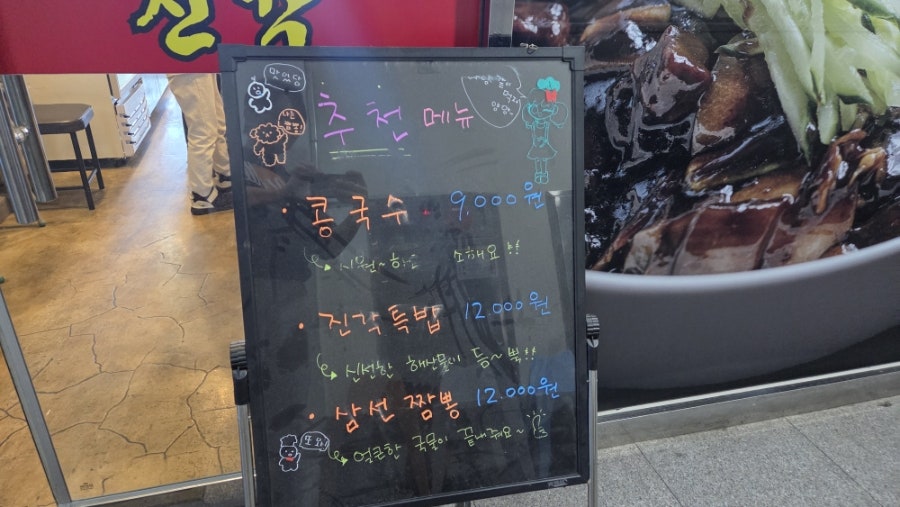 맛있당
추천 메뉴
콩국수 9,000원
시원~하고 소해요!!
진각특밥 12.000원
신선한 해산물이 등~뿍!!
삼선짬뽕 12.000원
얼큰한 국물이 끝내줘요~
또 와